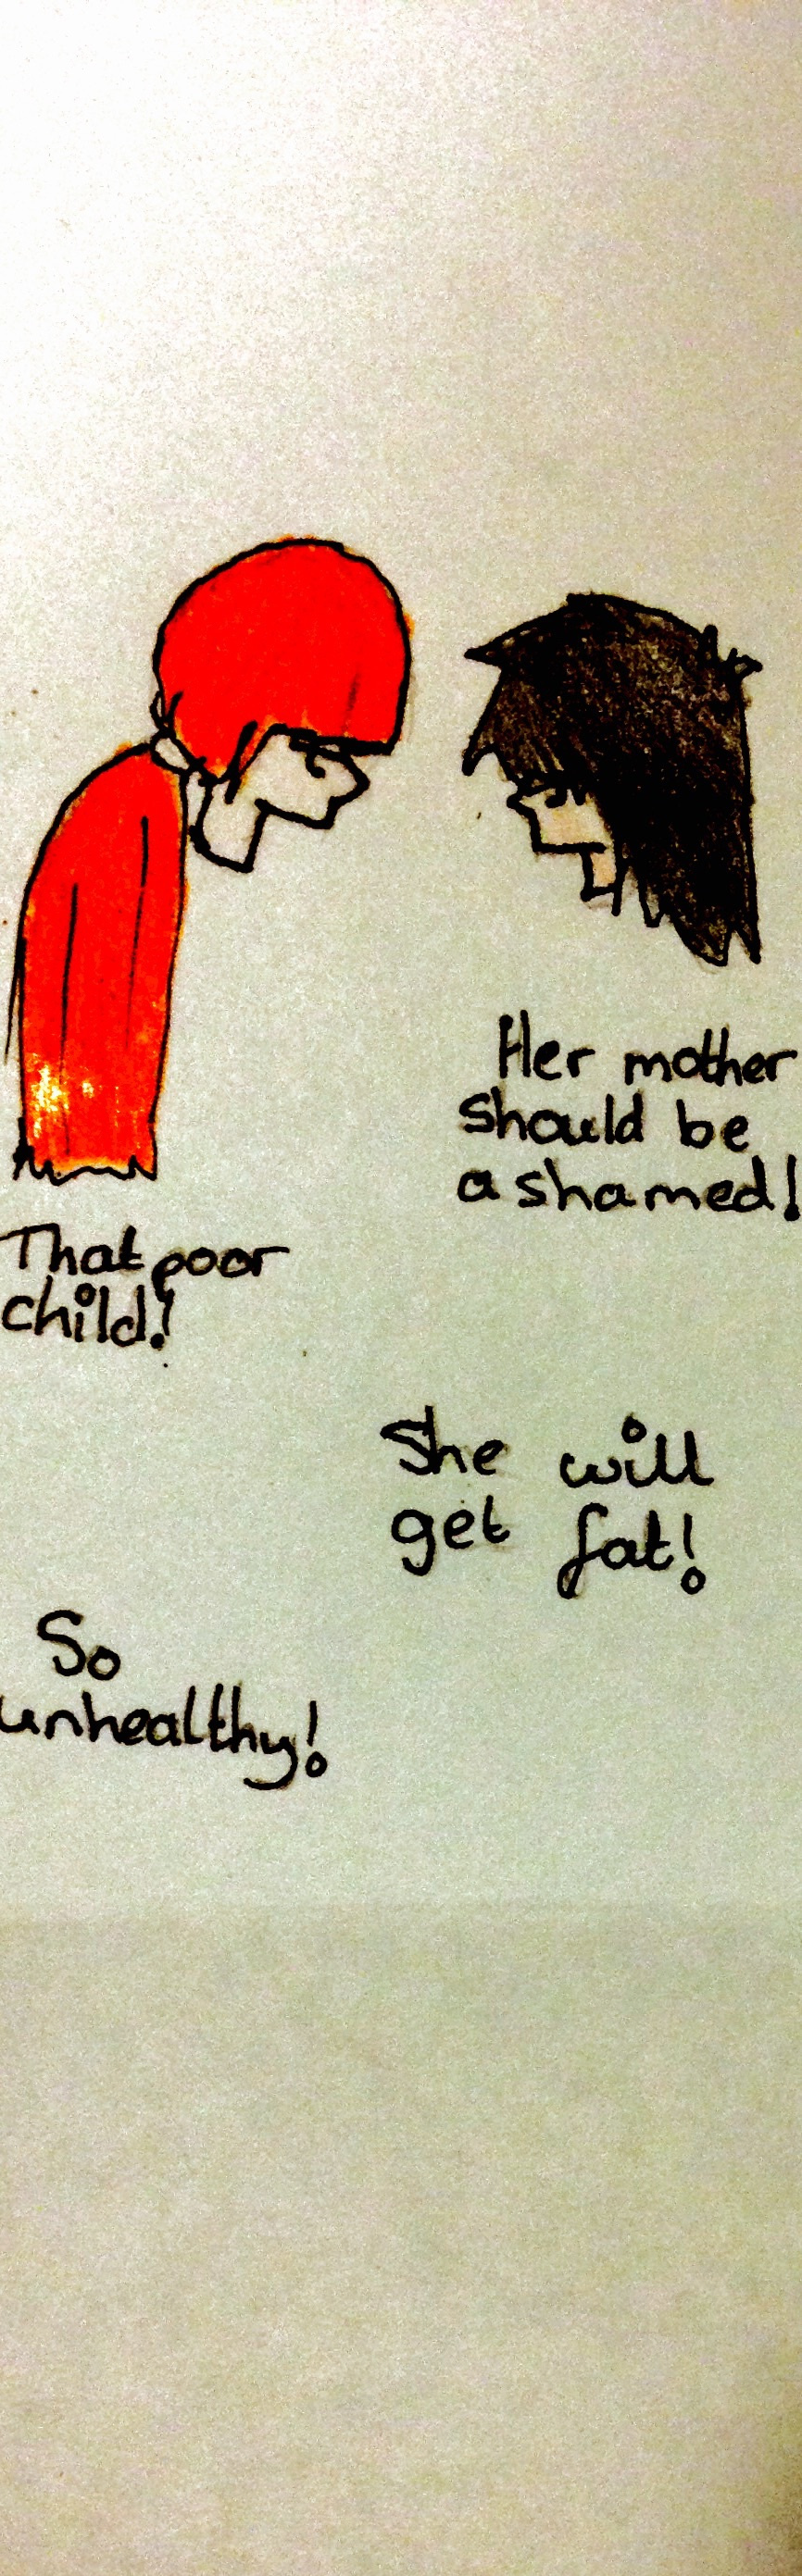 Her mother
should be
ashamed!
That poor
child!
She will
get fat!
So
unhealthy!